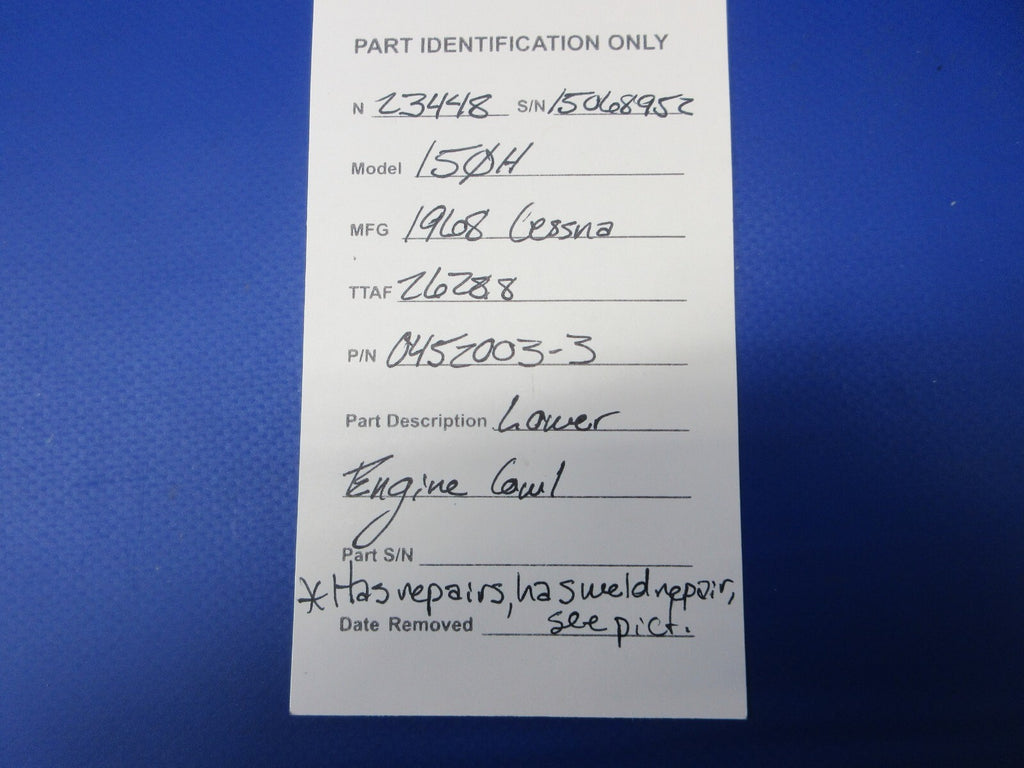 PART IDENTIFICATION ONLY
N 23448 S/N 15068952
Model 150H
MFG 1968 Cessna
TTAF 26288
P/N 0452003-3
Part Description Lower
Engine Cowl
Part S/N
* Has repairs, has weld repair,
Date Removed see pict.